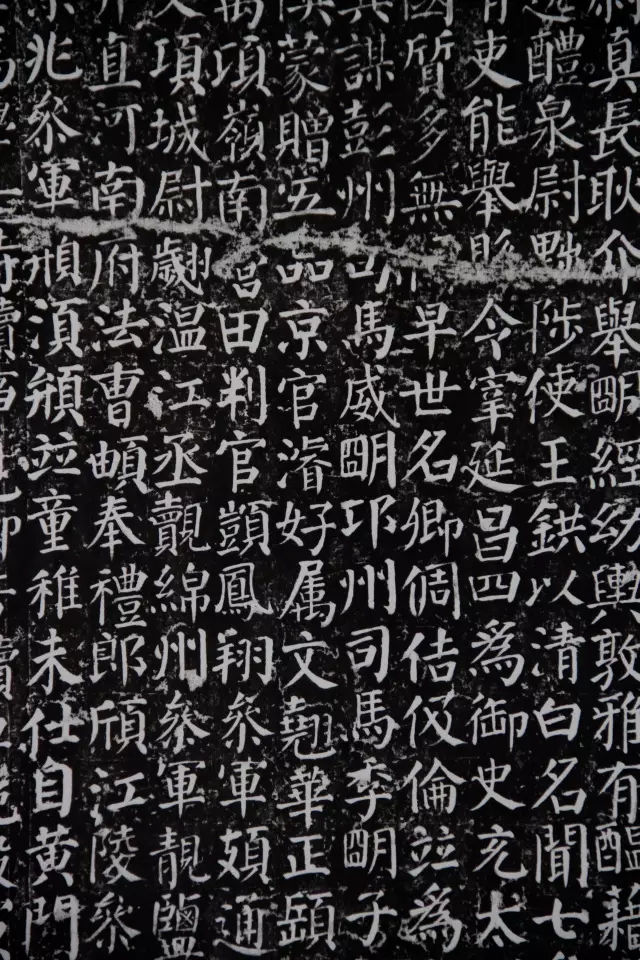 真長耿介舉明經幼輿敦雅有醖藉
醴泉尉黜陟使王鉷以清白名聞七
有吏能舉縣令宰延昌四為御史充太
國質多無祿早世名卿倜佶伋倫並為
其謀彭州司馬威明邛州司馬季明子
俱蒙贈五品京官濬好屬文翹華正頤
萬頃嶺南營田判官顗鳳翔參軍頗通
項城尉翽温江丞覿綿州參軍靚鹽
直河南府法曹頔奉禮郎頎江陵參
京兆參軍須並童稚未仕自黃門